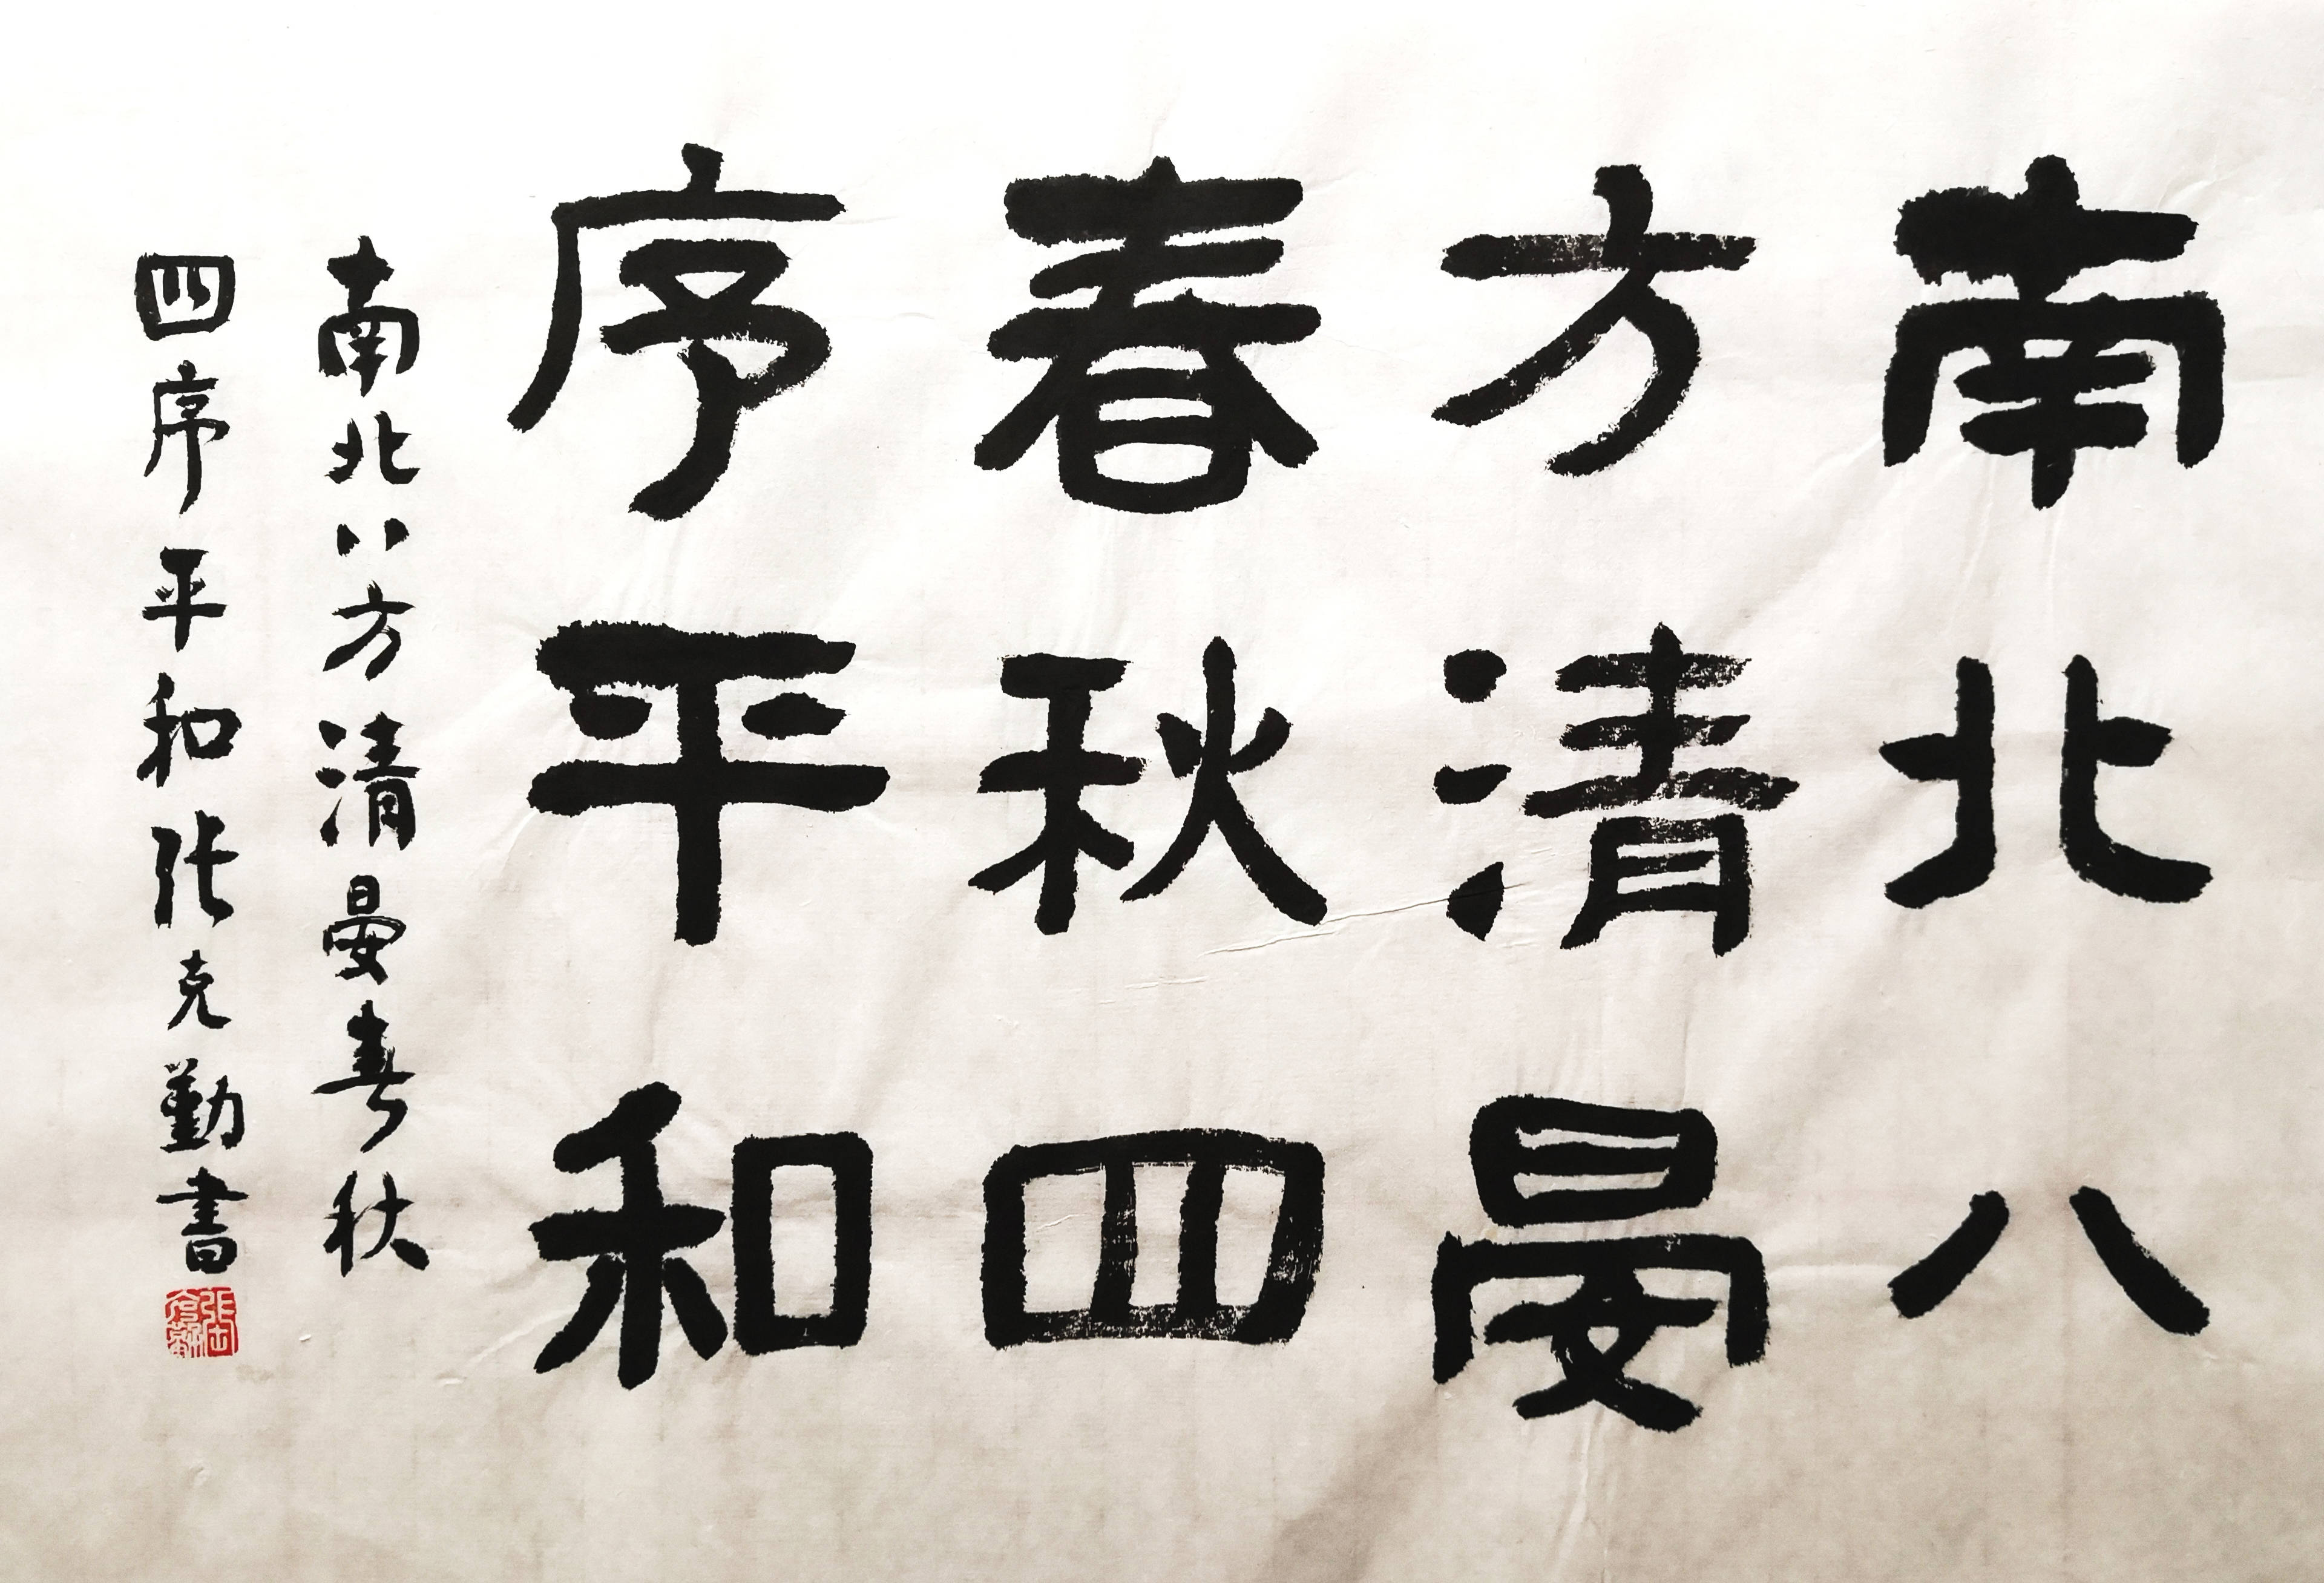 南北八
方清晏
春秋四
序平和
南北八方清晏春秋
四序平和张克勤書